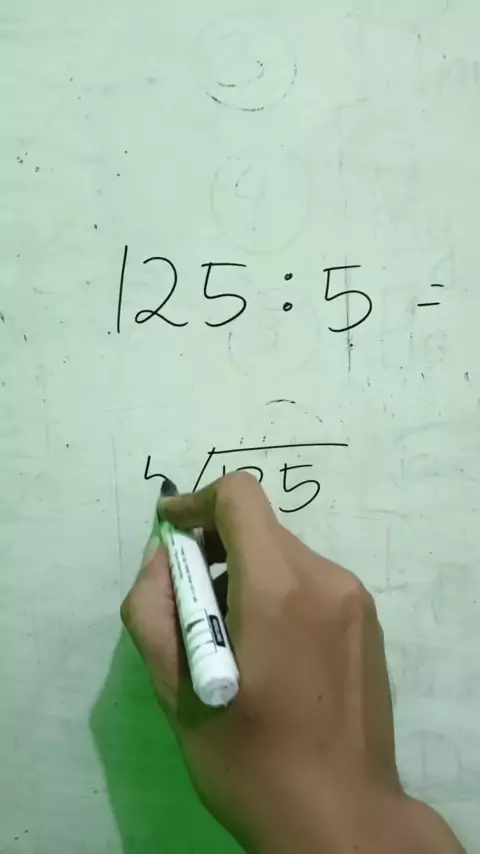 125 : 5 =
5 125